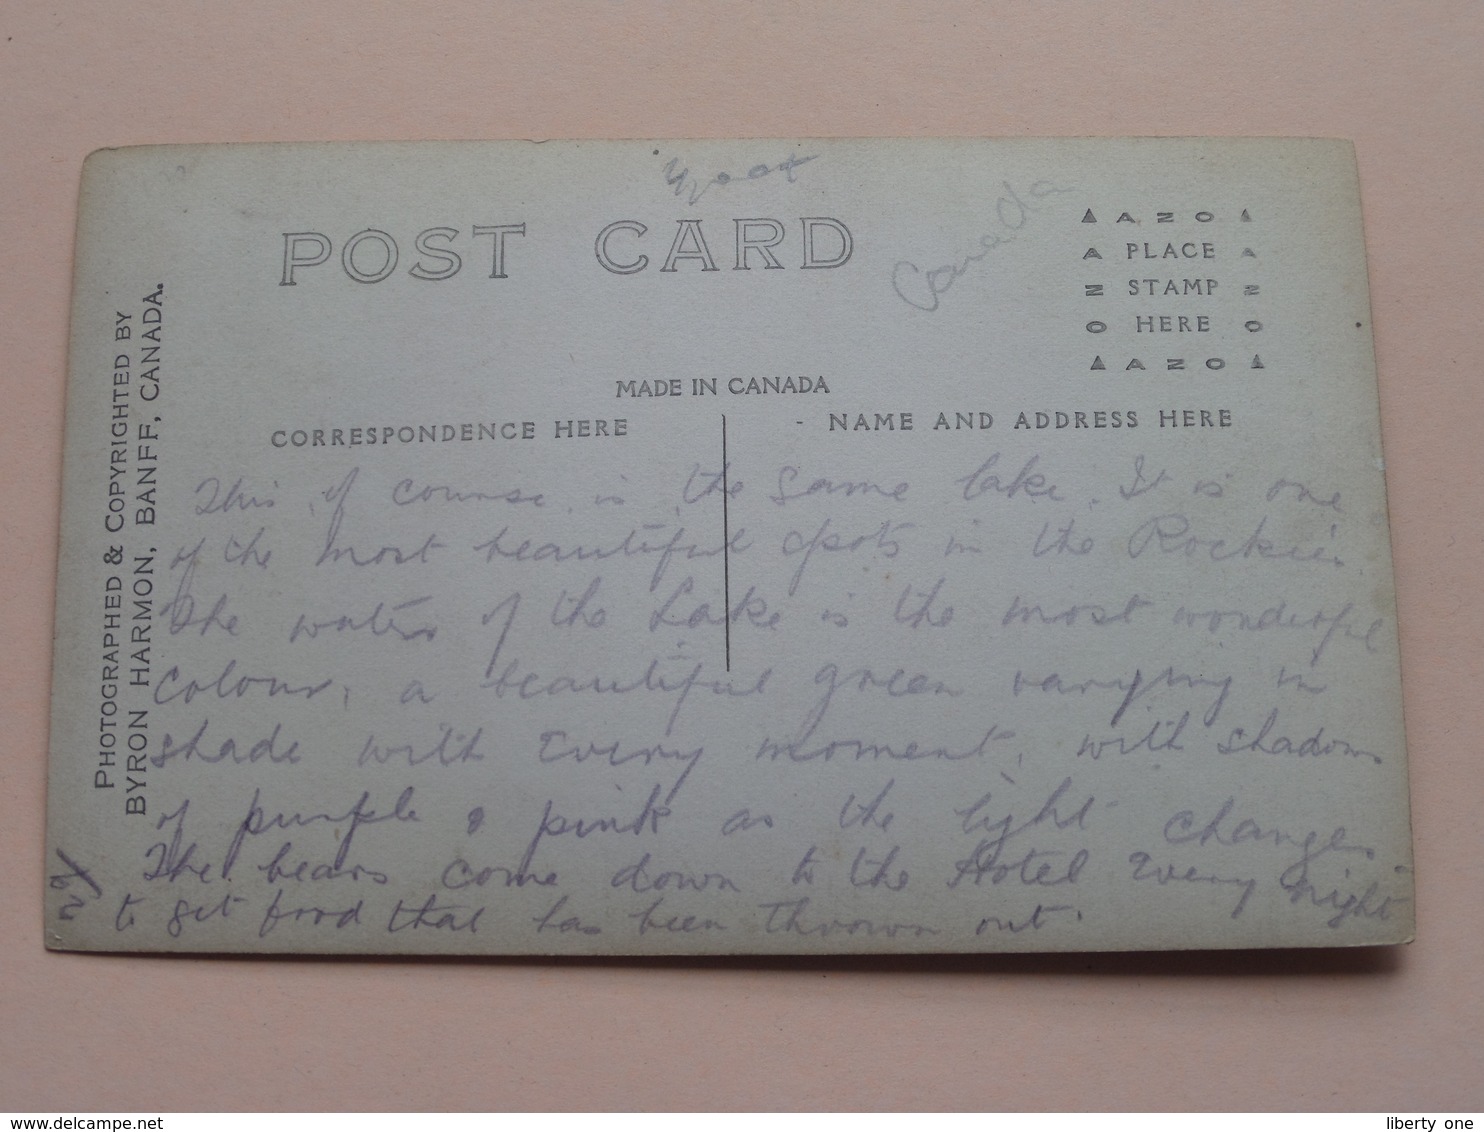 POST CARD
Canada
▲ AZO ▲
A PLACE A
N STAMP N
O HERE O
▲ AZO ▲
MADE IN CANADA
CORRESPONDENCE HERE
- NAME AND ADDRESS HERE
PHOTOGRAPHED & COPYRIGHTED BY
BYRON HARMON, BANFF, CANADA.
This, of course, is the same lake. It is one
of the most beautiful spots in the Rockies.
The waters of the Lake is the most wonderful
colour, a beautiful green varying in
shade with every moment, with shadows
of purple & pink as the light changes.
The bears come down to the Hotel every night
to get food that has been thrown out.
www.delcampe.net
liberty one